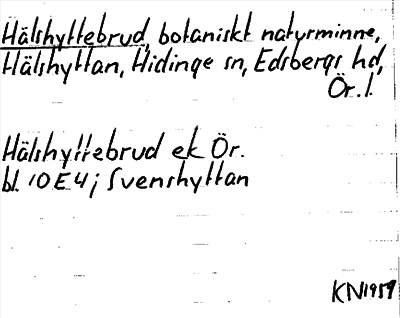 Hälshyttebrud, botaniskt naturminne,
Hälshyttan, Hidinge sn, Edsbergs hd,
Ör. l.
Hälshyttebrud ek Ör.
bl. 10E4j Svenshyttan
KN1959